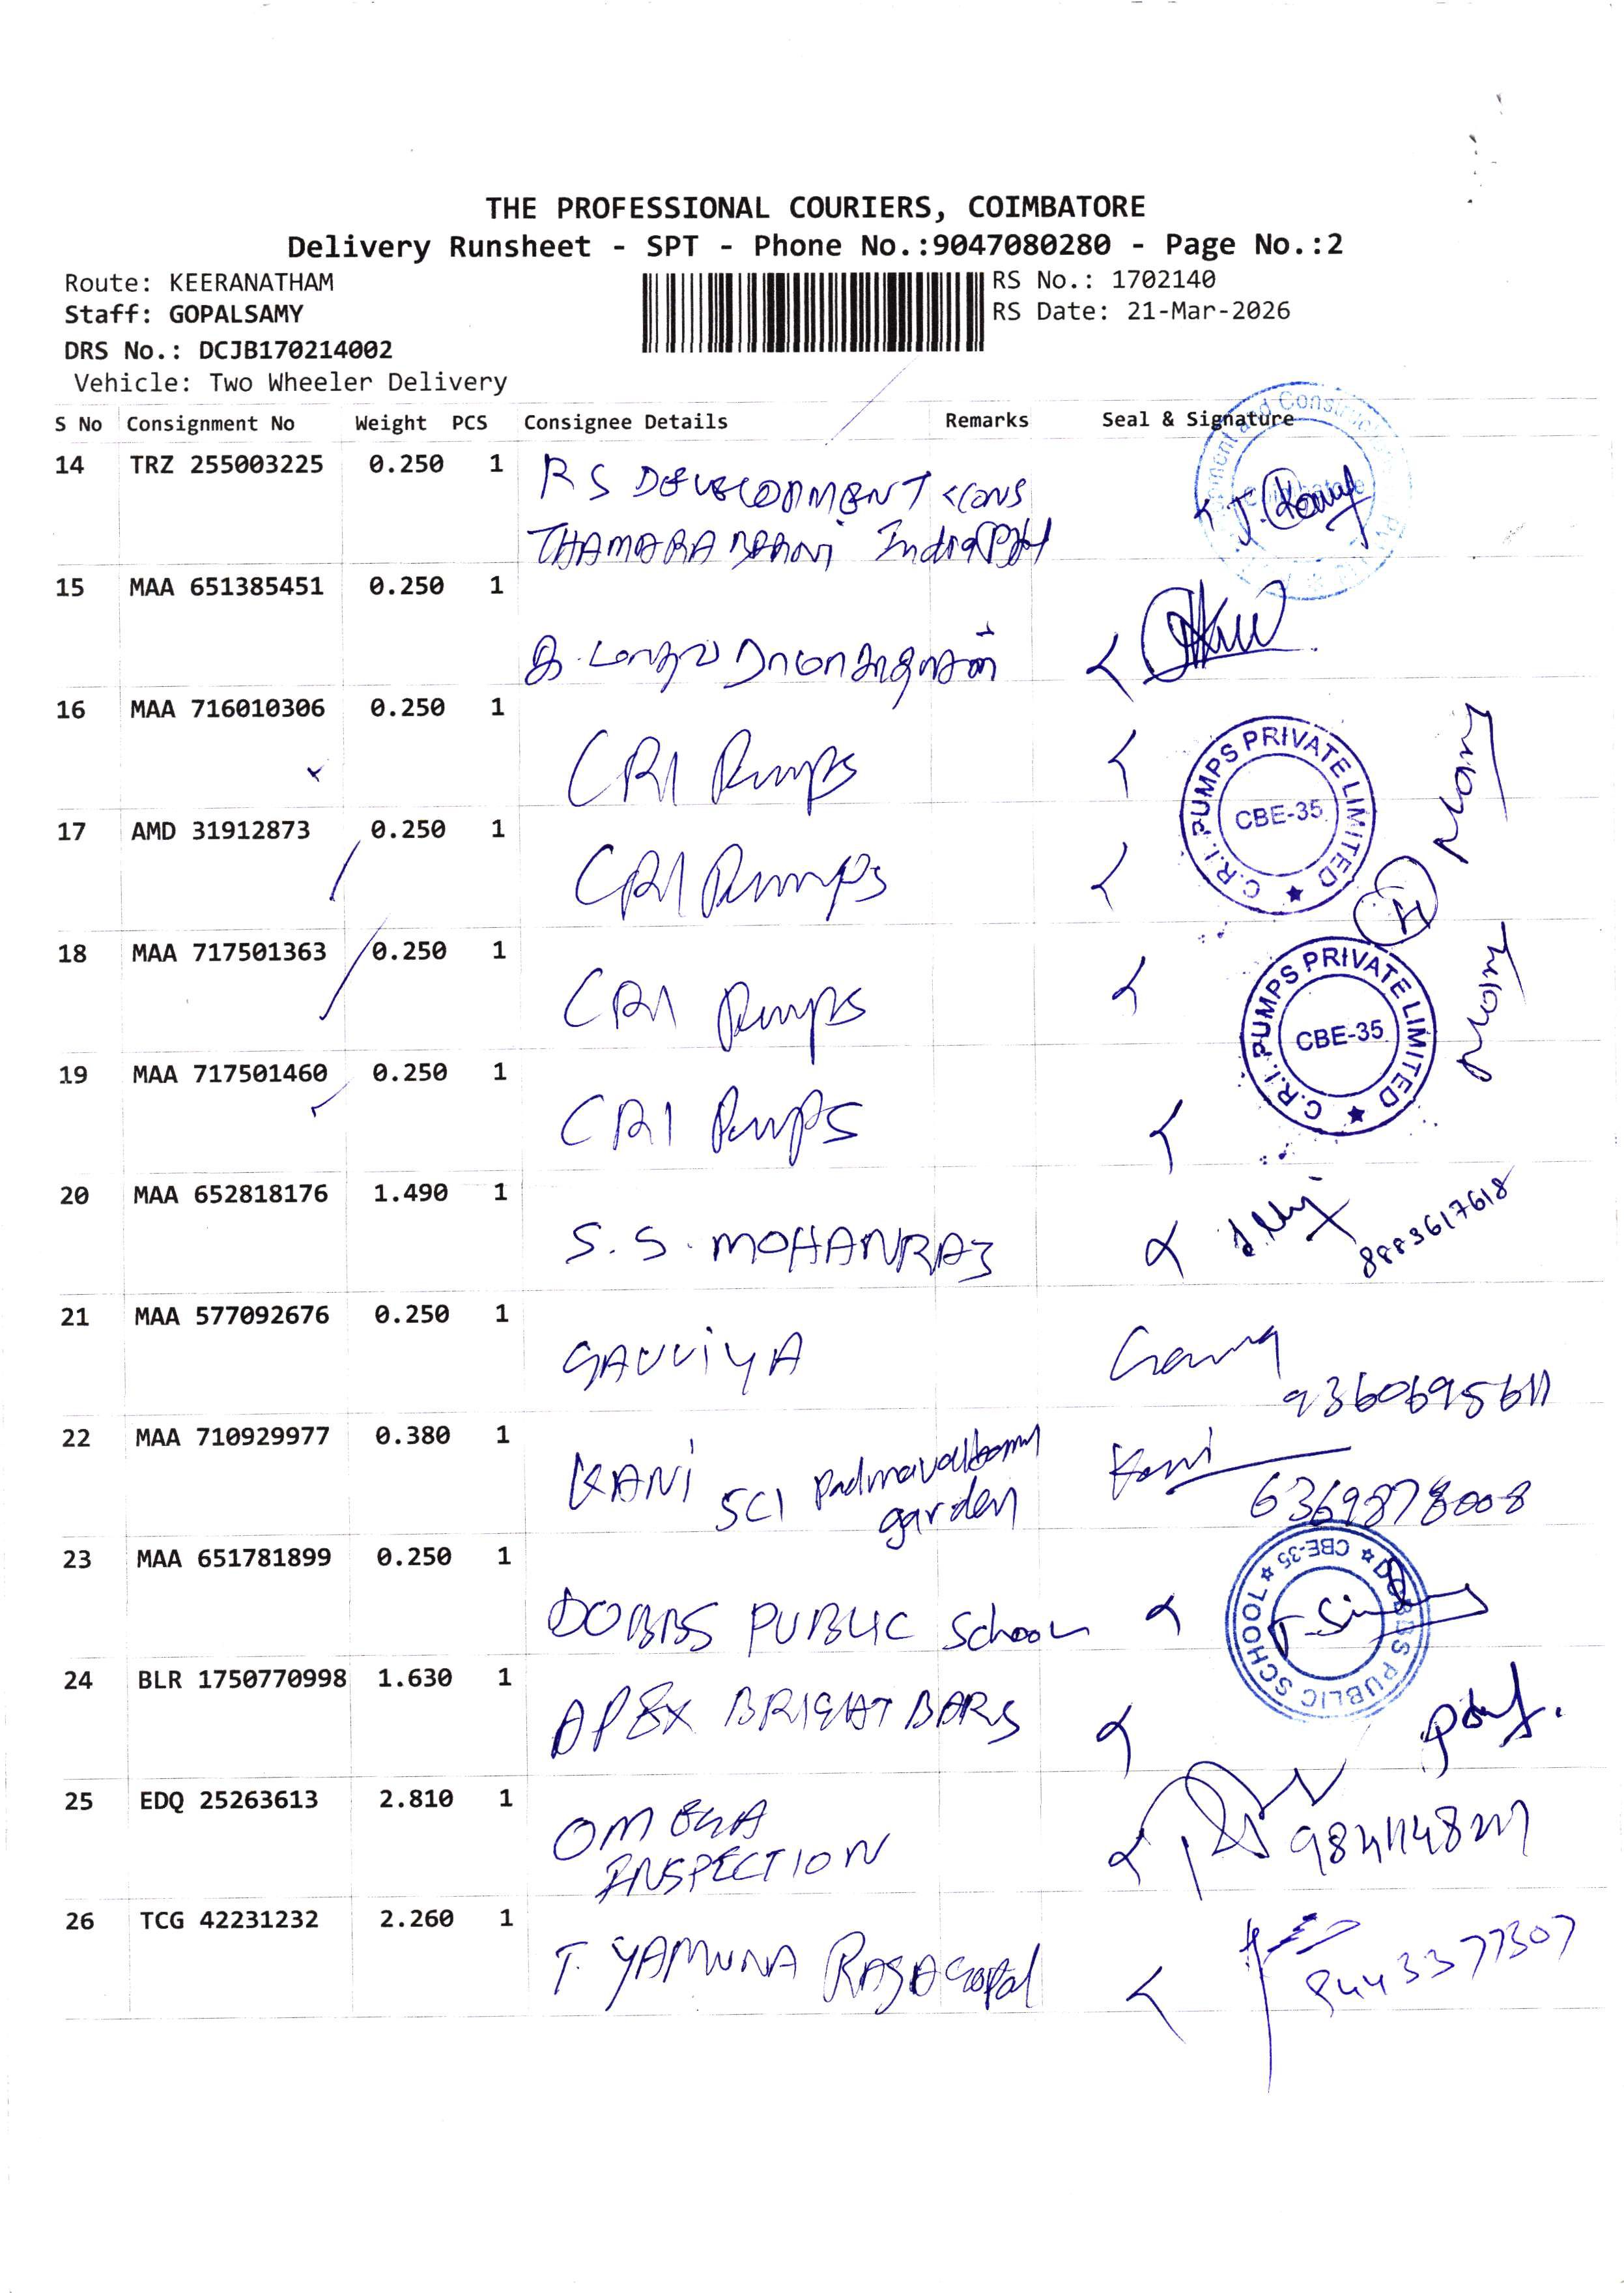 THE PROFESSIONAL COURIERS, COIMBATORE
Delivery Runsheet - SPT - Phone No.:9047080280 - Page No.:2
Route: KEERANATHAM
RS No.: 1702140
Staff: GOPALSAMY
RS Date: 21-Mar-2026
DRS No.: DCJB170214002
Vehicle: Two Wheeler Delivery
S No Consignment No Weight PCS Consignee Details Remarks Seal & Signature
14 TRZ 255003225 0.250 1 R S DEVELOPMENT
15 MAA 651385451 0.250 1
16 MAA 716010306 0.250 1 CRI Pumps
C.R.I. PUMPS PRIVATE LIMITED ★ CBE-35 Mani
17 AMD 31912873 0.250 1 CRI Pumps
18 MAA 717501363 0.250 1 CRI Pumps
C.R.I. PUMPS PRIVATE LIMITED ★ CBE-35 Mani
19 MAA 717501460 0.250 1 CRI Pumps
20 MAA 652818176 1.490 1 S. S. MOHANRAJ 8883617618
21 MAA 577092676 0.250 1 GAUUIYA
9360695611
22 MAA 710929977 0.380 1 KANI SCI garden Kani
6369878008
23 MAA 651781899 0.250 1 DOBBS PUBLIC School
DOBBS PUBLIC SCHOOL ☆ CBE-35 ☆
24 BLR 1750770998 1.630 1 APEX BRIGHT BARS
25 EDQ 25263613 2.810 1 OMEGA
INSPECTION
26 TCG 42231232 2.260 1 T. YAMUNA RAJAGopal
9443377307